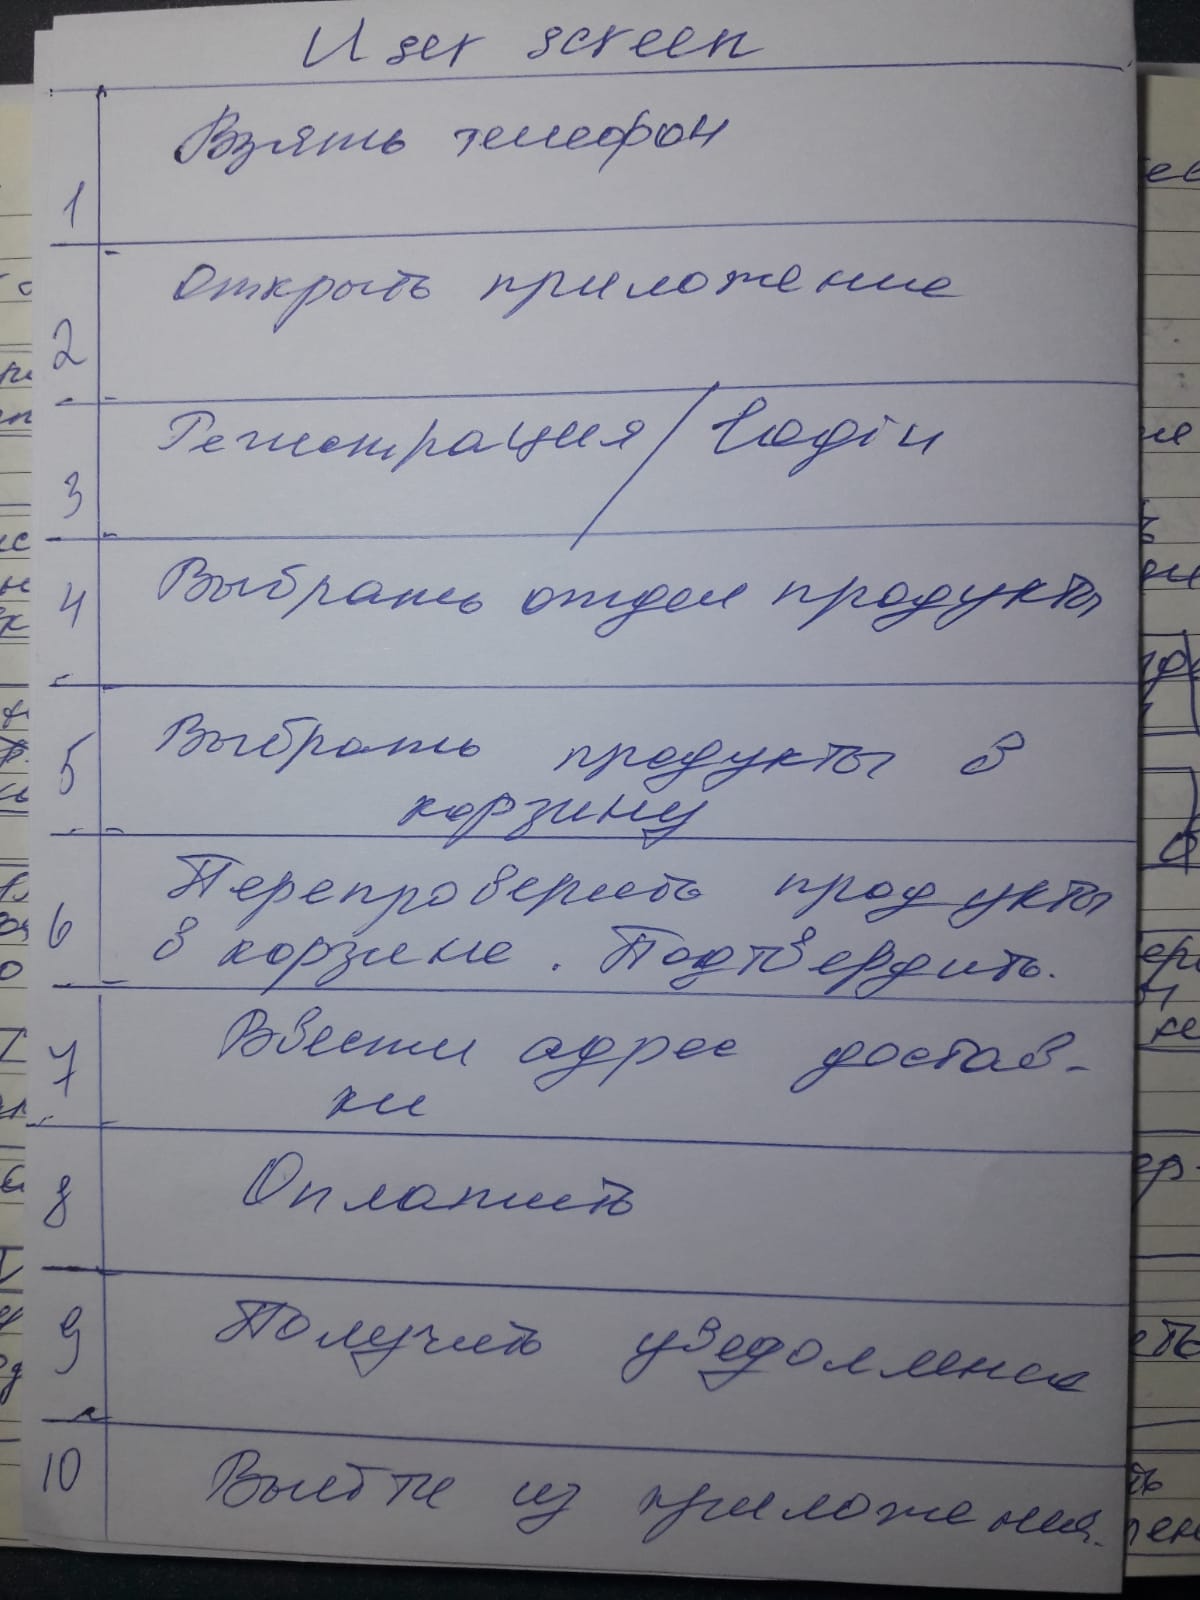 User screen
1 Взять телефон
2 Открыть приложение
3 Регистрация / Login
4 Выбрать отдел продукты
5 Выбрать продукты в
корзину
6 Перепроверить продукты
в корзине. Подтвердить.
7 Ввести адрес достав-
ки
8 Оплатить
9 Получить уведомление
10 Выйти из приложения.